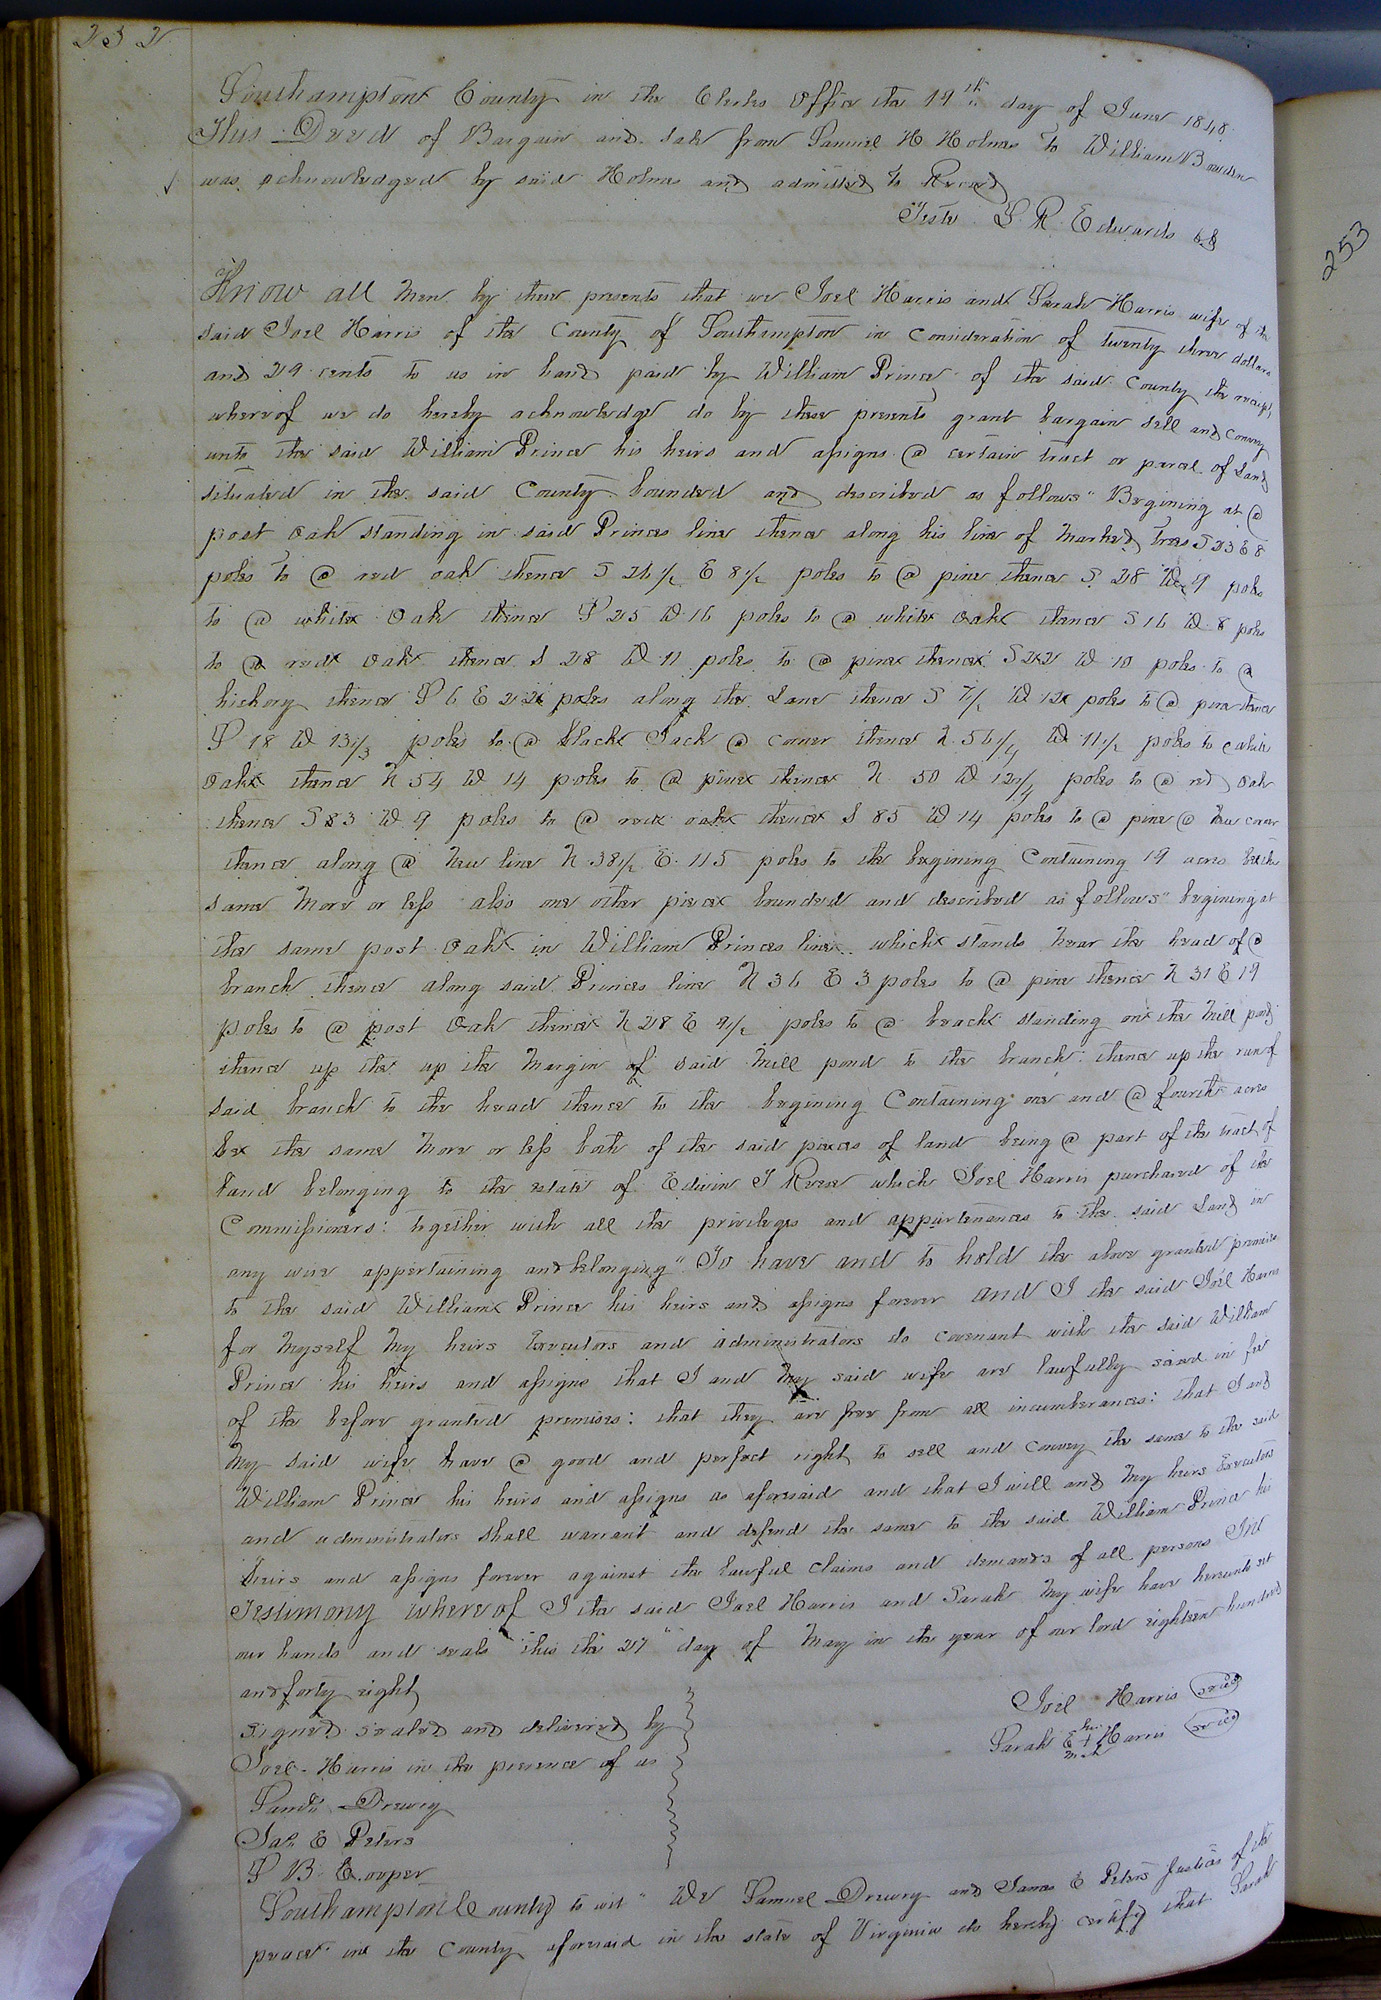 232
Southampton County in the Clerks Office the 19th day of June 1848
This Deed of Bargain and sale from Samuel H Holmes to William Bowden
was acknowledged by said Holmes and admitted to Record
Teste L. R. Edwards CC
253
Know all Men by these presents that we Joel Harris and Sarah Harris wife of the
said Joel Harris of the County of Southampton in Consideration of twenty three dollars
and 29 cents to us in hand paid by William Prince of the said County the receipt
whereof we do hereby acknowledge do by these presents grant bargain sell and convey
unto the said William Prince his heirs and assigns @ certain tract or parcel of Land
situated in the said County bounded and described as follows" Begining at @
post oak standing in said Princes line thence along his line of marked trees S 23 E 8
poles to @ red oak thence S 26 1/2 E 8 1/2 poles to @ pine thence S 28 W 9 poles
to @ white oak thence S 25 W 16 poles to @ white oak thence S 16 W 8 poles
to @ red oak thence S 28 W 11 poles to @ pine thence S 22 W 10 poles to @
hickory thence S 6 E 22 poles along the Lane thence S 7 1/2 W 12 poles to @ pine thence
S 18 W 13 1/3 poles to @ black Jack @ corner thence N 56 1/4 W 11 1/2 poles to white
oak thence N 54 W 14 poles to @ pine thence N. 50 W 12 1/4 poles to @ red oak
thence S 83 W 9 poles to @ red oak thence S 85 W 14 poles to @ pine @ New corner
thence along @ New line N 38 1/2 E. 115 poles to the begining Containing 19 acres be the
same More or less also one other piece bounded and described as follows" begining at
the same post oak in William Princes line which stands near the head of @
branch thence along said Princes line N 36 E 3 poles to @ pine thence N 31 E 19
poles to @ post oak thence N 28 E 9 1/2 poles to @ beach standing on the Mill pond
thence up the up the Margin of said Mill pond to the branch: thence up the run of
said branch to the head thence to the begining Containing one and @ fourth acres
be the same More or less both of the said pieces of land being @ part of the tract of
land belonging to the estate of Edwin T Reese which Joel Harris purchased of the
Commissioners: together with all the privileges and appurtenances to the said Land in
any wise appertaining and belonging" To have and to hold the above granted premises
to the said William Prince his heirs and assigns forever and I the said Joel Harris
for Myself My heirs Executors and administrators do covenant with the said William
Prince his heirs and assigns that I and My said wife are lawfully seized in fee
of the before granted premises: that they are free from all incumberances: that I and
My said wife have @ good and perfect right to sell and convey the same to the said
William Prince his heirs and assigns as aforesaid and that I will and My heirs Executors
and administrators shall warrant and defend the same to the said William Prince his
heirs and assigns forever against the lawful claims and demands of all persons In
Testimony whereof I the said Joel Harris and Sarah My wife have hereunto set
our hands and seals this the 27" day of May in the year of our lord eighteen hundred
and forty eight
Joel Harris (seal)
signed sealed and delivered by
her
Sarah E + Harris (seal)
mark
Joel Harris in the presence of us
Saml Drewry
Jas E Peters
P B Cooper
Southampton County to wit" We Samuel Drewry and James E Peters Justices of the
peace in the County aforesaid in the state of Virginia do hereby certify that Sarah